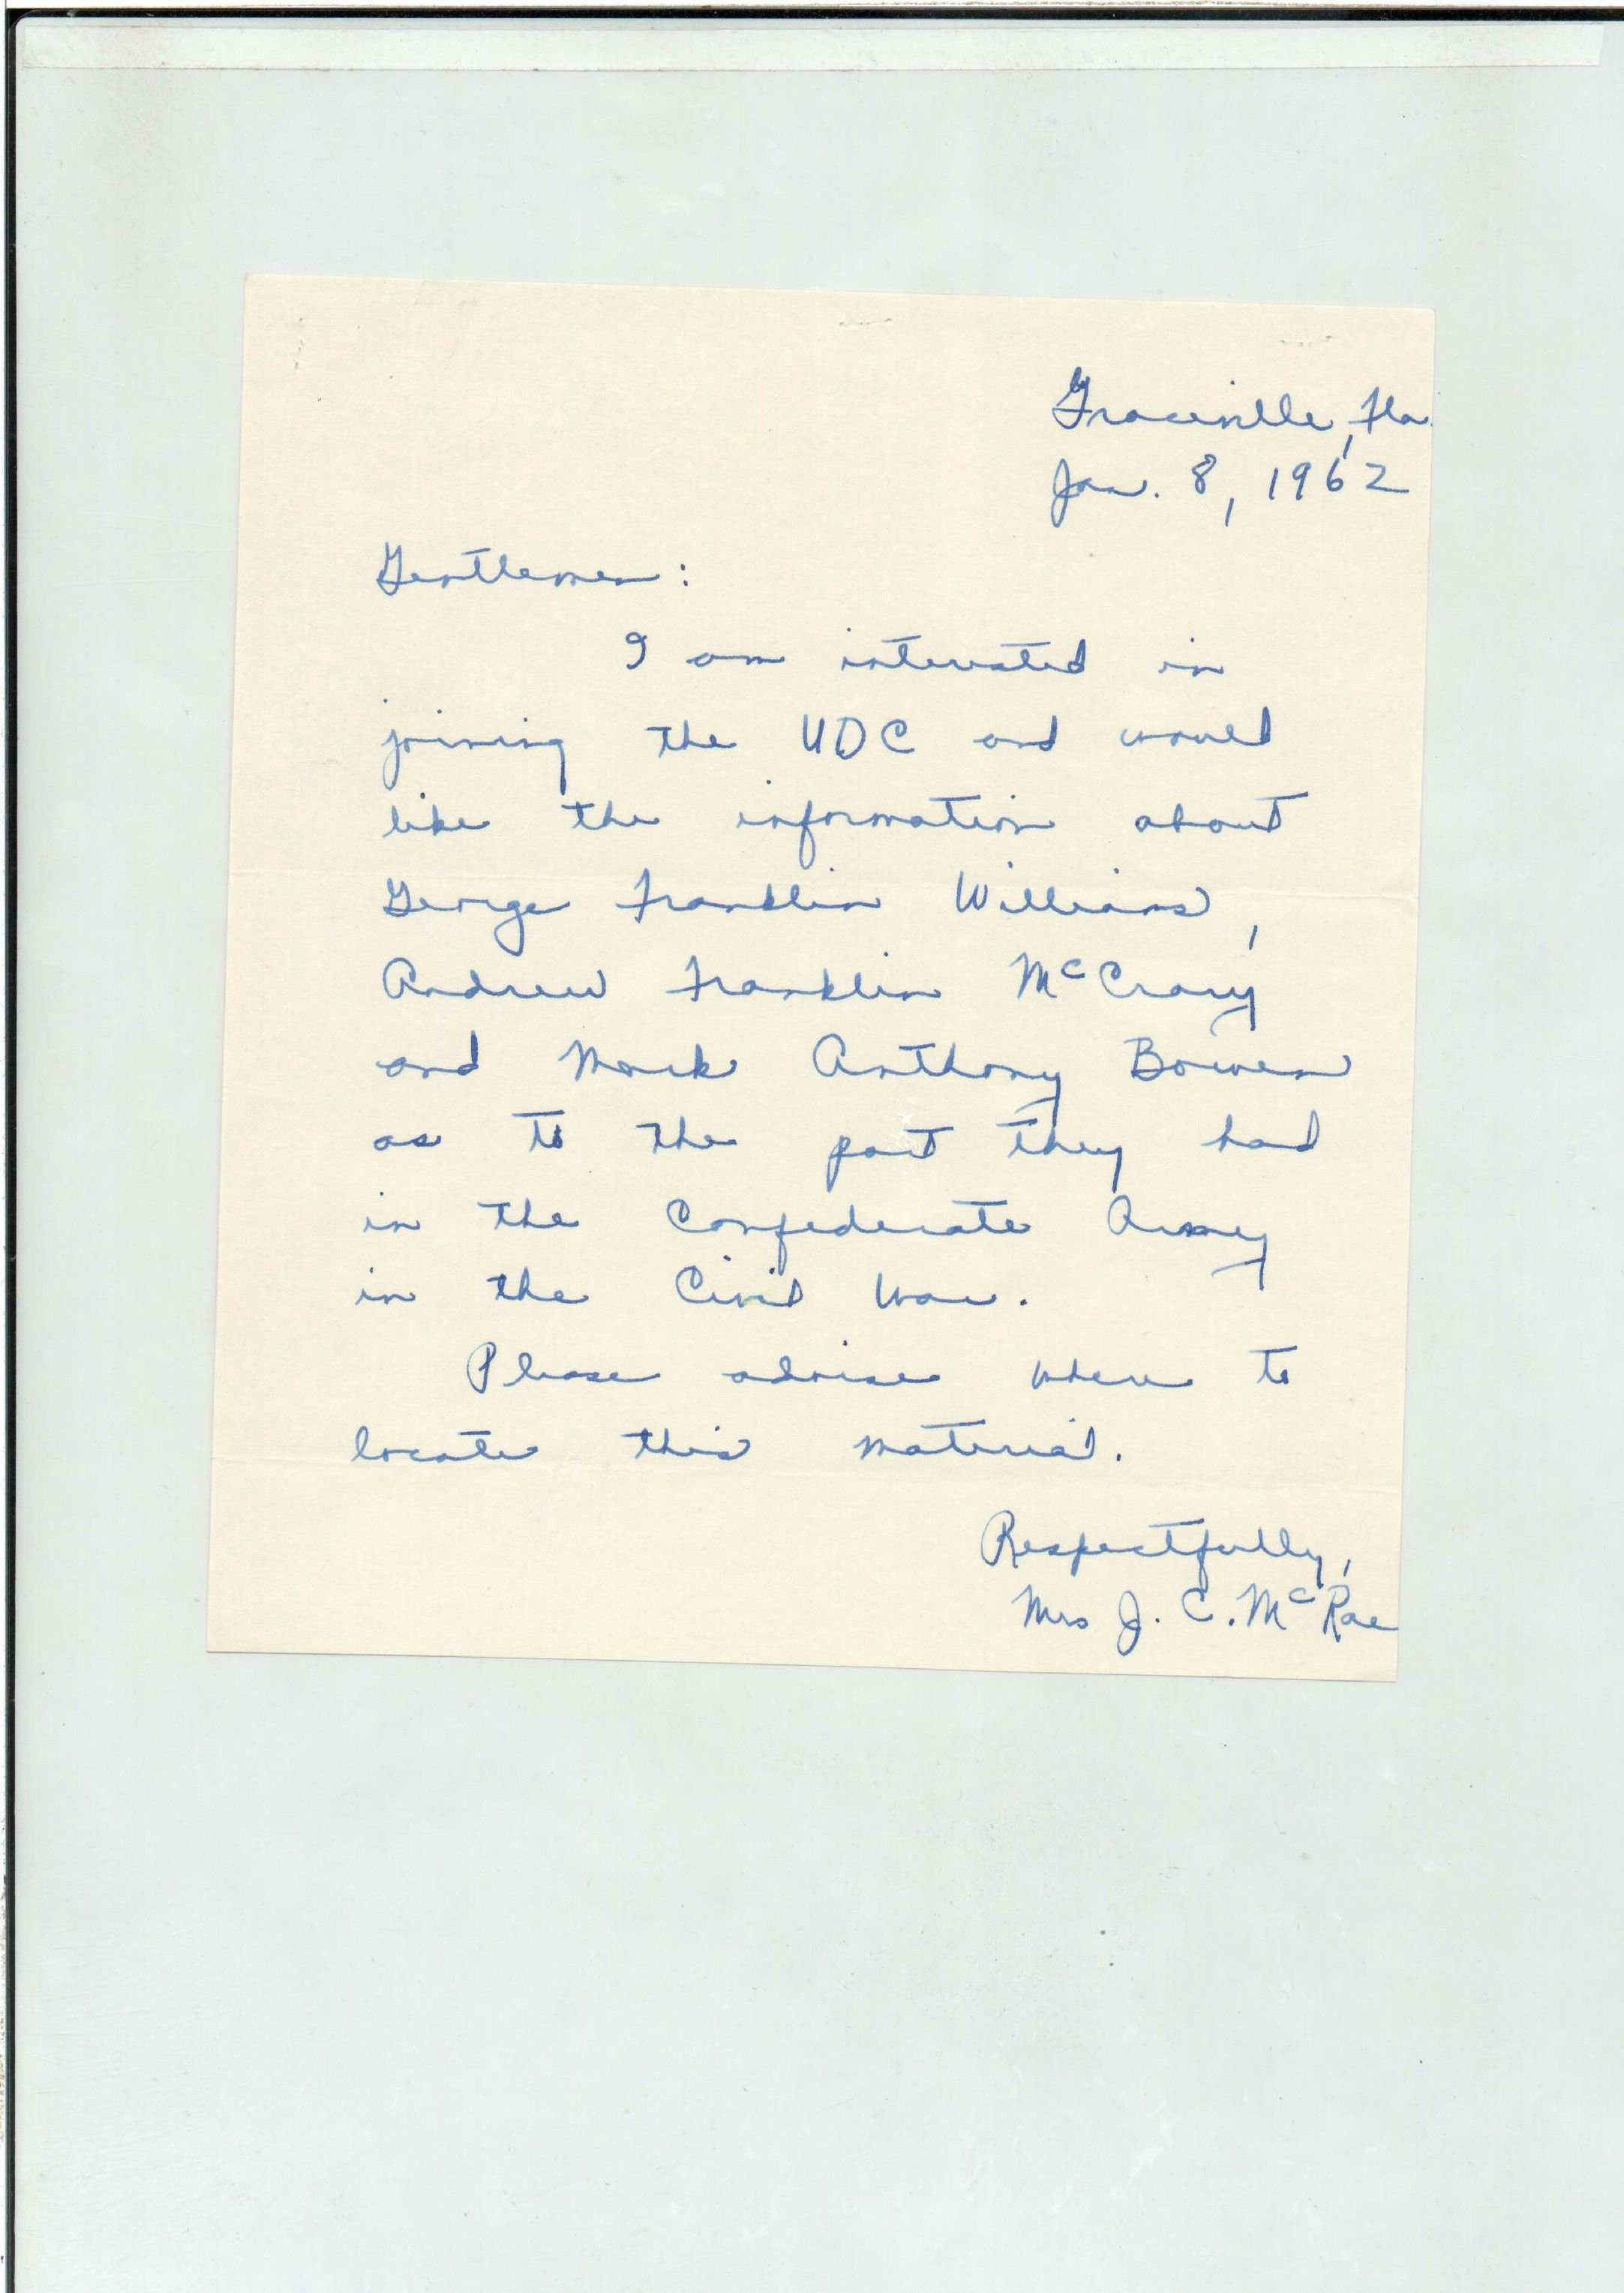 Graceville, Fla.
Jan. 8, 1962
Gentlemen:
I am interested in
joining the UDC and would
like the information about
George Franklin Williams,
Andrew Franklin McCrary
and Mark Anthony Bowen
as to the part they had
in the Confederate Army
in the Civil War.
Please advise where to
locate this material.
Respectfully,
Mrs J. C. McRae